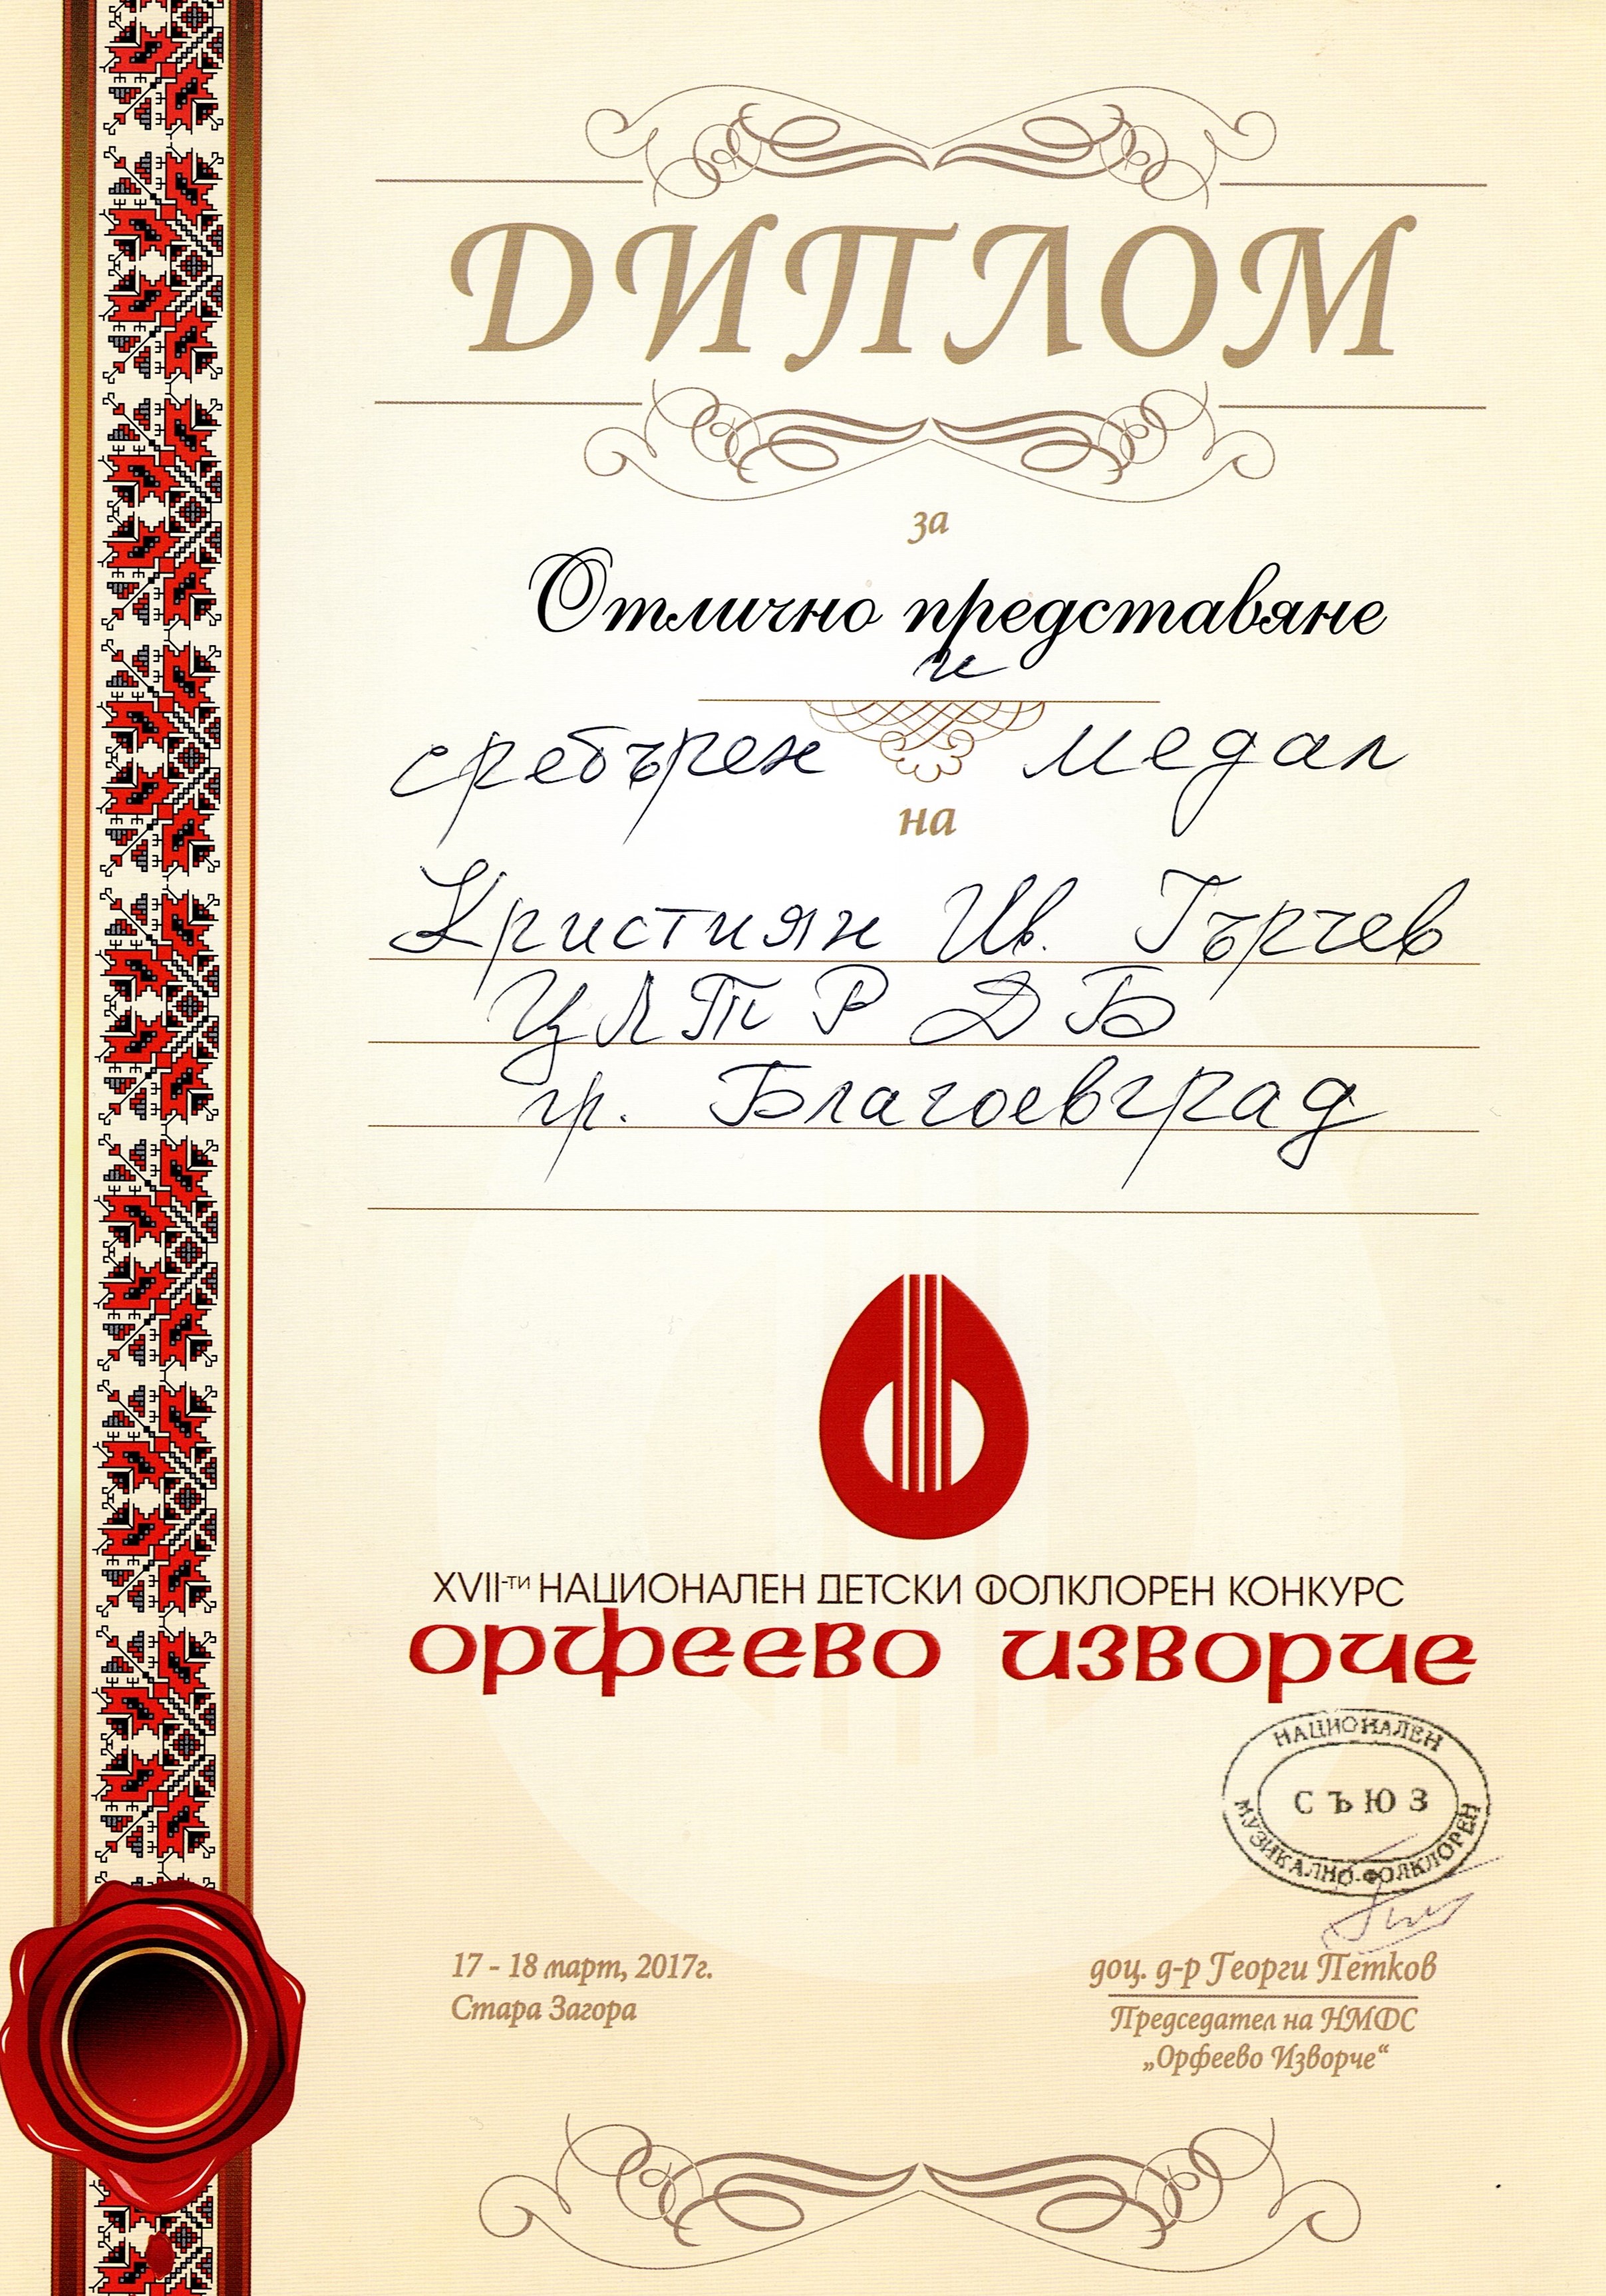 ДИПЛОМ
за
Отлично представяне
и
сребърен медал
на
Кристиян Ив. Гърчев
ЦЛТРДБ
гр. Благоевград
XVII-ти НАЦИОНАЛЕН ДЕТСКИ ФОЛКЛОРЕН КОНКУРС
орфеево изворче
НАЦИОНАЛЕН
СЪЮЗ
МУЗИКАЛНО-ФОЛКЛОРЕН
17 - 18 март, 2017г.
Стара Загора
доц. д-р Георги Петков
Председател на НМФС
„Орфеево Изворче“